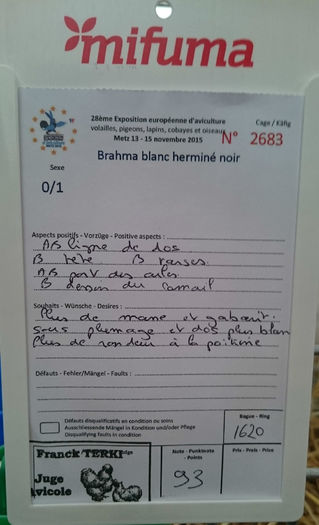 mifuma
28ème Exposition européenne d'aviculture
volailles, pigeons, lapins, cobayes et oiseaux
Metz 13 - 15 novembre 2015
Cage / Käfig
N° 2683
Brahma blanc herminé noir
Sexe
0/1
Aspects positifs - Vorzüge - Positive aspects :
AB ligne de dos
B tête B tarses
AB port des ailes
B dessin du camail
Souhaits - Wünsche - Desires :
Plus de masse et gabarit.
sous plumage et dos plus blanc
Plus de rondeur à la poitrine
Défauts - Fehler/Mängel - Faults :
Défauts disqualificatifs en condition ou soins
Ausschliessende Mängel in Kondition und/oder Pflege
Disqualifying faults in condition
Bague - Ring
1620
Franck TERKI
Juge
avicole
Note - Punktnote
- Points
93
Prix - Preis - Prize